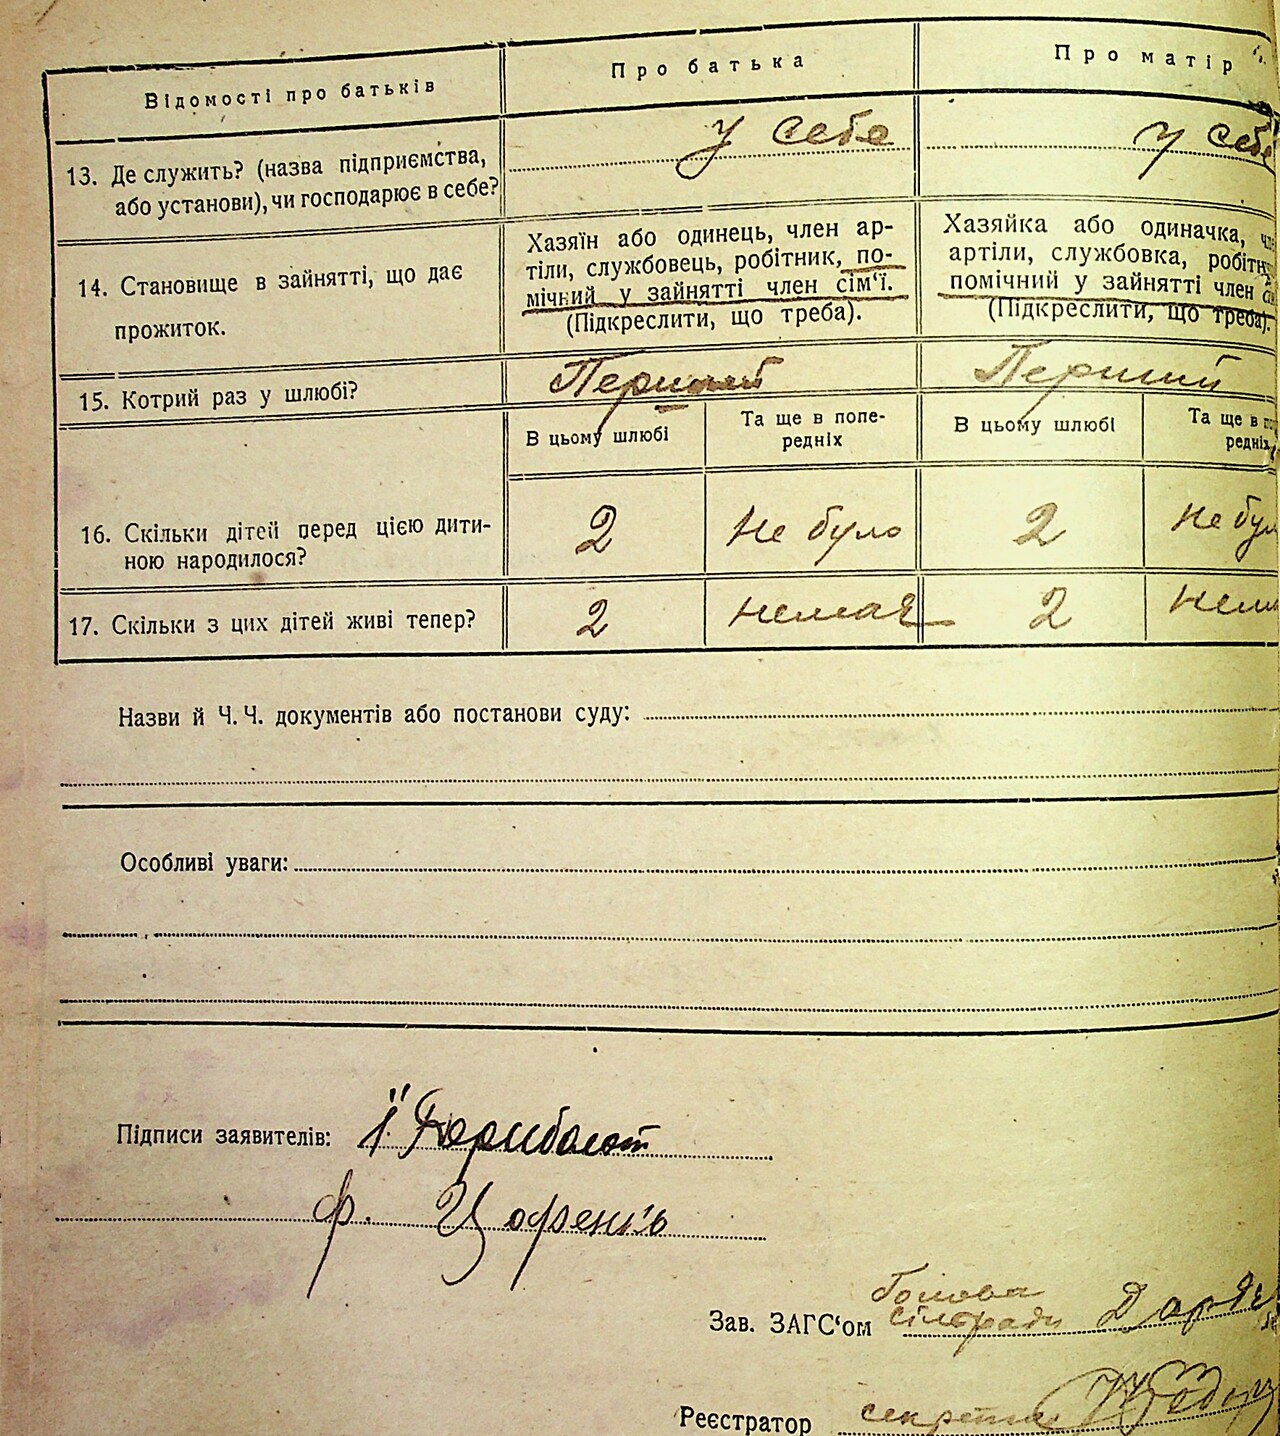 Відомості про батьків
Про батька
Про матір
13. Де служить? (назва підприємства,
або установи), чи господарює в себе?
у себе
у себе
14. Становище в зайнятті, що дає
прожиток.
Хазяїн або одинець, член ар-
тіли, службовець, робітник, по-
мічний у зайнятті член сім'ї.
(Підкреслити, що треба).
Хазяйка або одиначка,
артіли, службовка,
помічний у зайнятті член
(Підкреслити, що треба).
15. Котрий раз у шлюбі?
Перший
Перший
В цьому шлюбі
Та ще в попе-
редніх
В цьому шлюбі
Та ще в
16. Скільки дітей перед цією дити-
ною народилося?
2
Не було
2
Не
17. Скільки з цих дітей живі тепер?
2
немає
2
Назви й Ч. Ч. документів або постанови суду:
Особливі уваги:
Підписи заявителів:
Ф.
Зав. ЗАГС'ом
Голова
сільради
Реєстратор